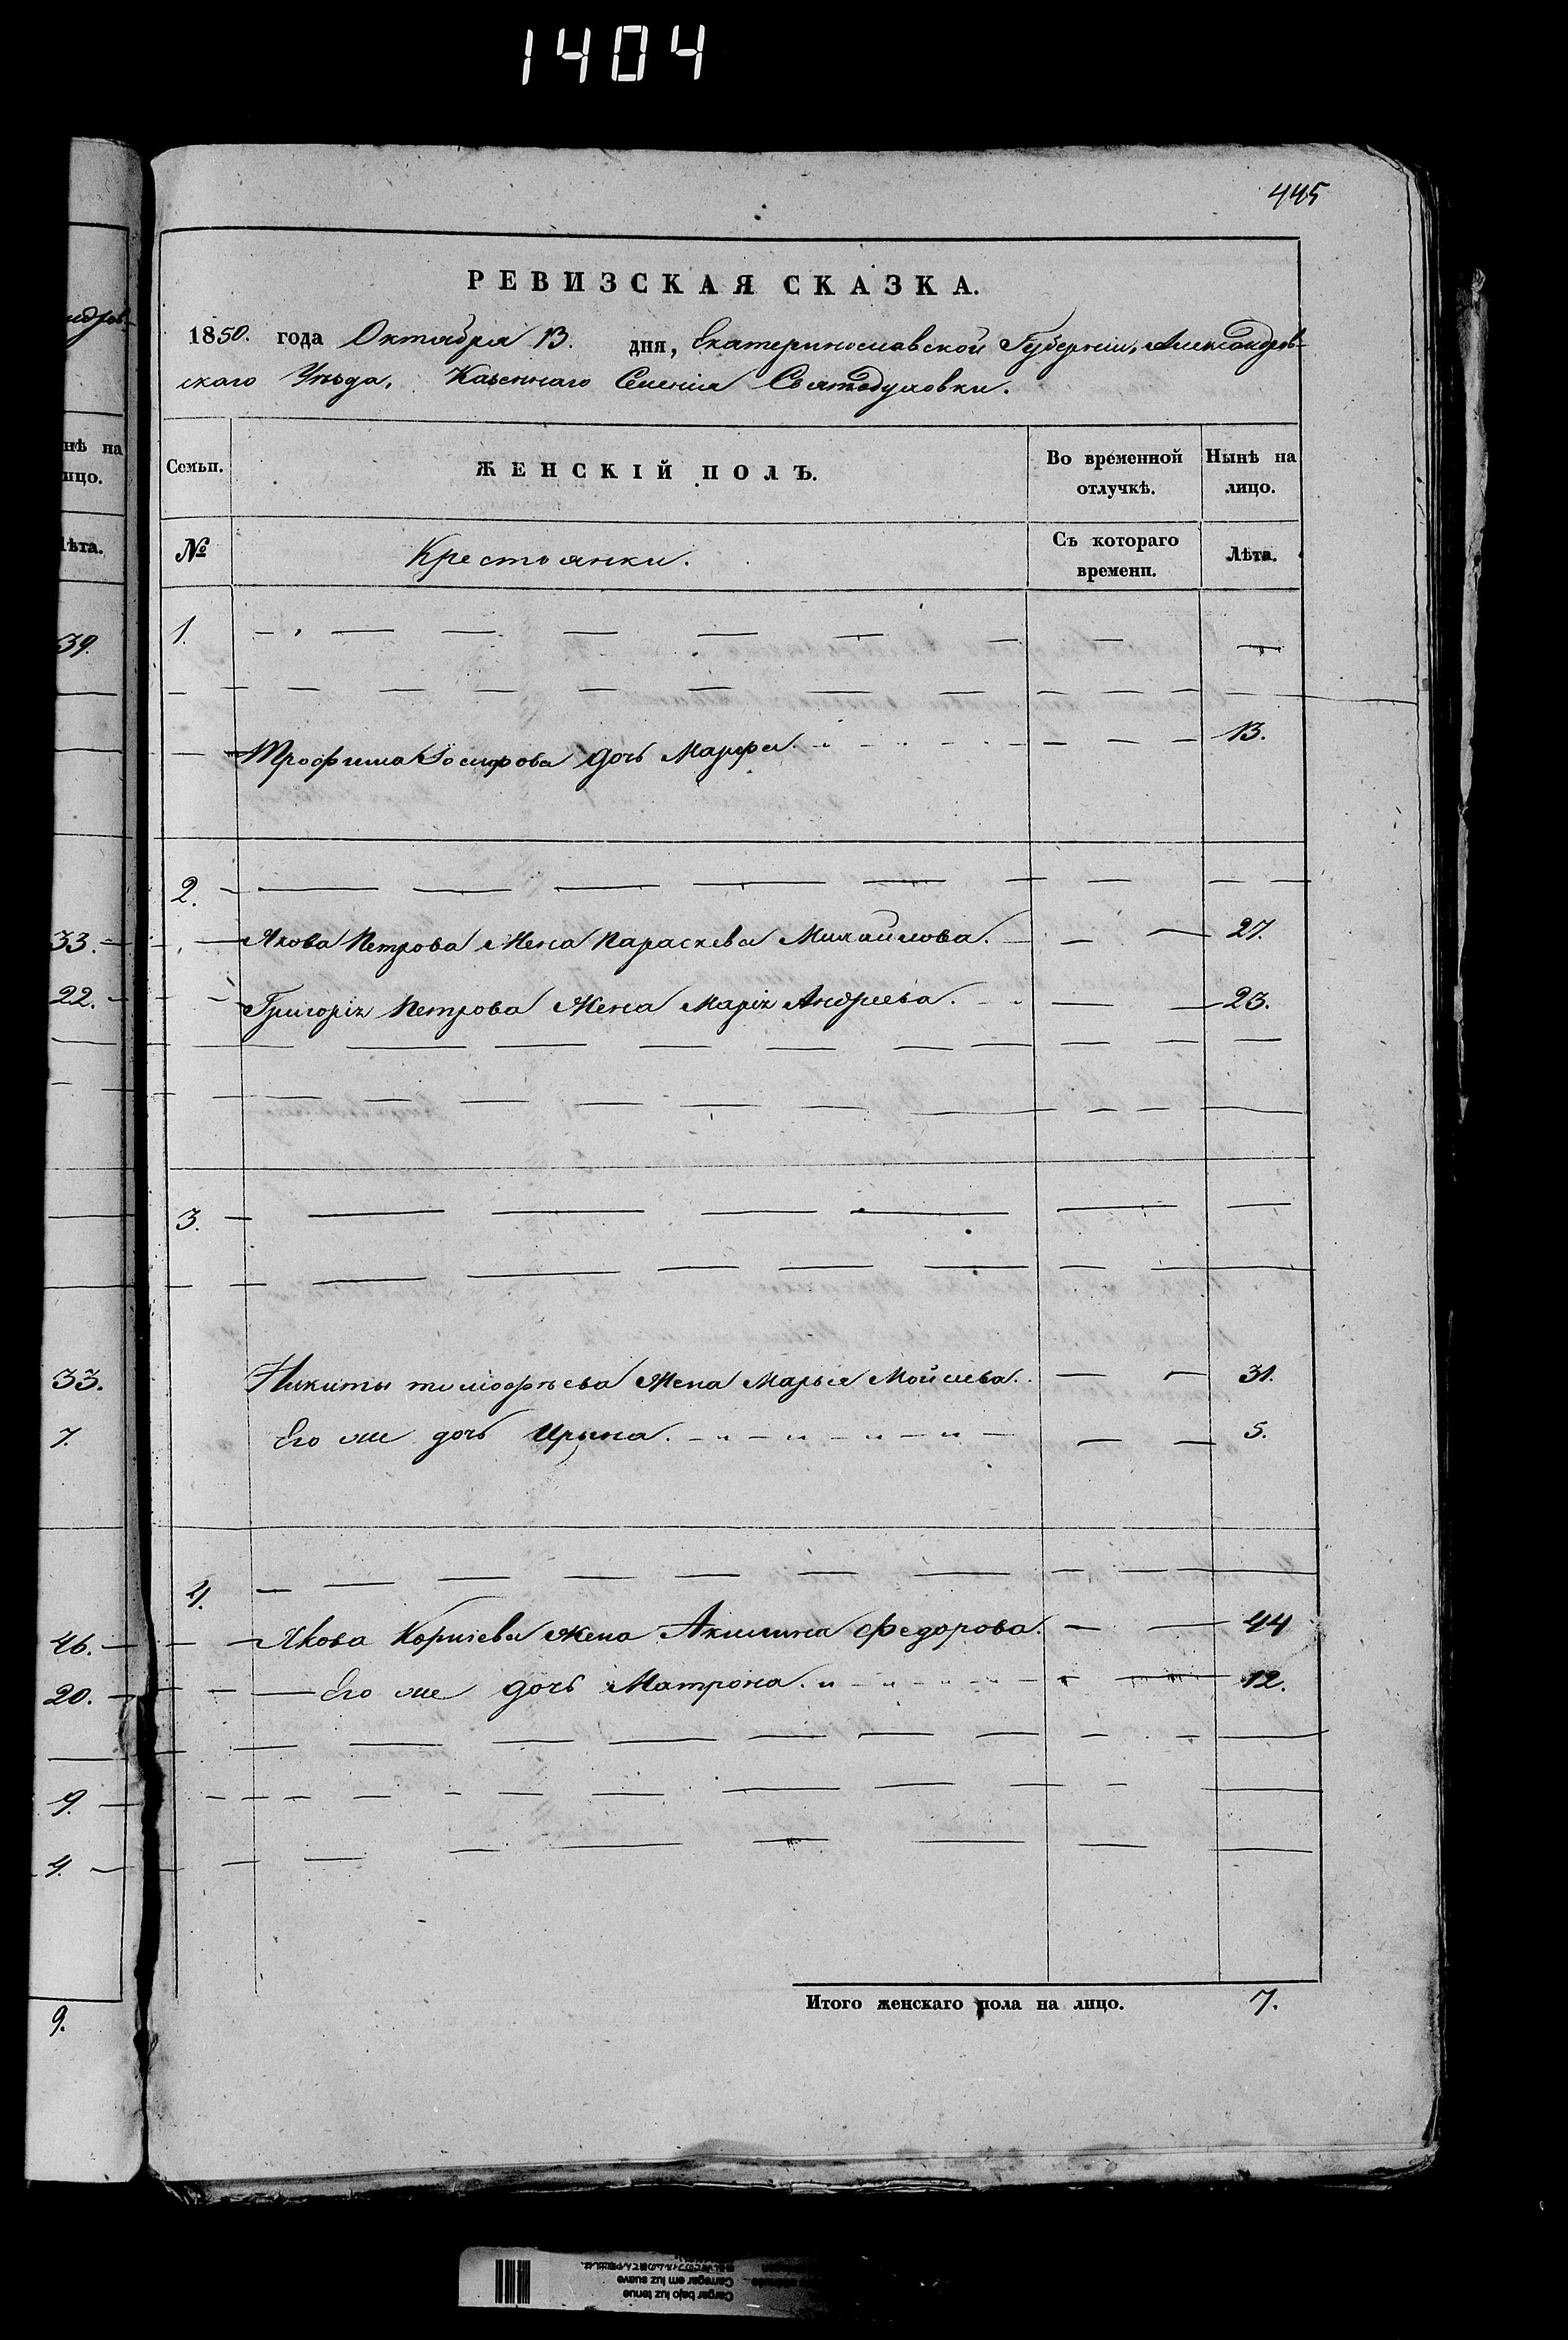 1404
445
РЕВИЗСКАЯ СКАЗКА.
1850. года Октября 13. дня, Екатеринославской Губерніи, Александров-
скаго Уѣзда, Казеннаго Селенія Святодуховки.
Семьи. ЖЕНСКІЙ ПОЛЪ. Во временной отлучкѣ. Нынѣ на лицо.
№ Крестьянки. Съ котораго времени. Лѣта.
1.
Трофима Іосифова дочь Марфа 13.
2.
Якова Петрова Жена Параскева Михайлова. 27.
Григорія Петрова Жена Марія Андреева. 23.
3.
Никиты тимофѣева Жена Марья Мойсеева. 31.
Его же дочь Ирина. 5.
4.
Якова Корнѣева жена Акилина Федорова. 44
Его же дочь Матрона. 12.
Итого женскаго пола на лицо. 7.
ндров-
нѣ на
ицо.
лѣта.
39.
33.
22.
33.
7.
46.
20.
9.
4.
9.
Cargar bajo luz tenue
Carregar em luz suave